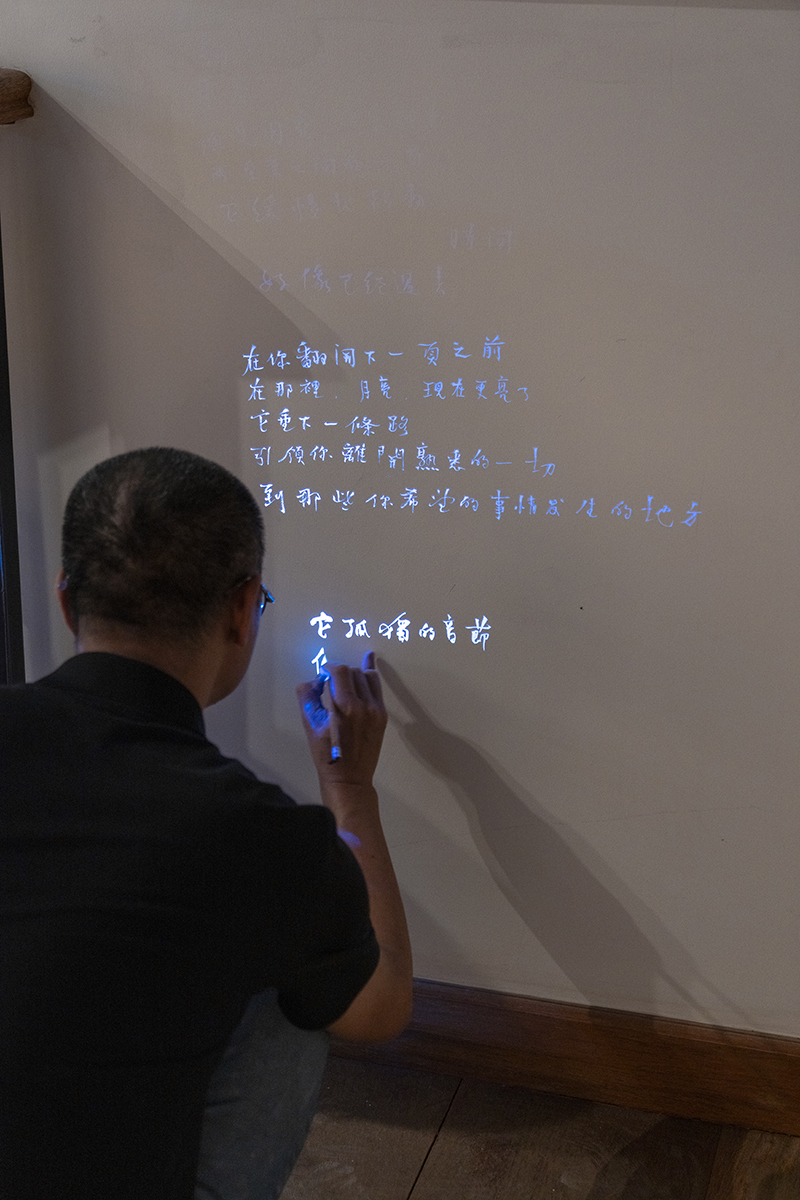 時間
好像它經過去
在你翻開下一頁之前
在那裡，月亮，現在更亮了
它垂下一條路
引領你離開熟悉的一切
到那些你希望的事情发生的地方
它孤獨的音節